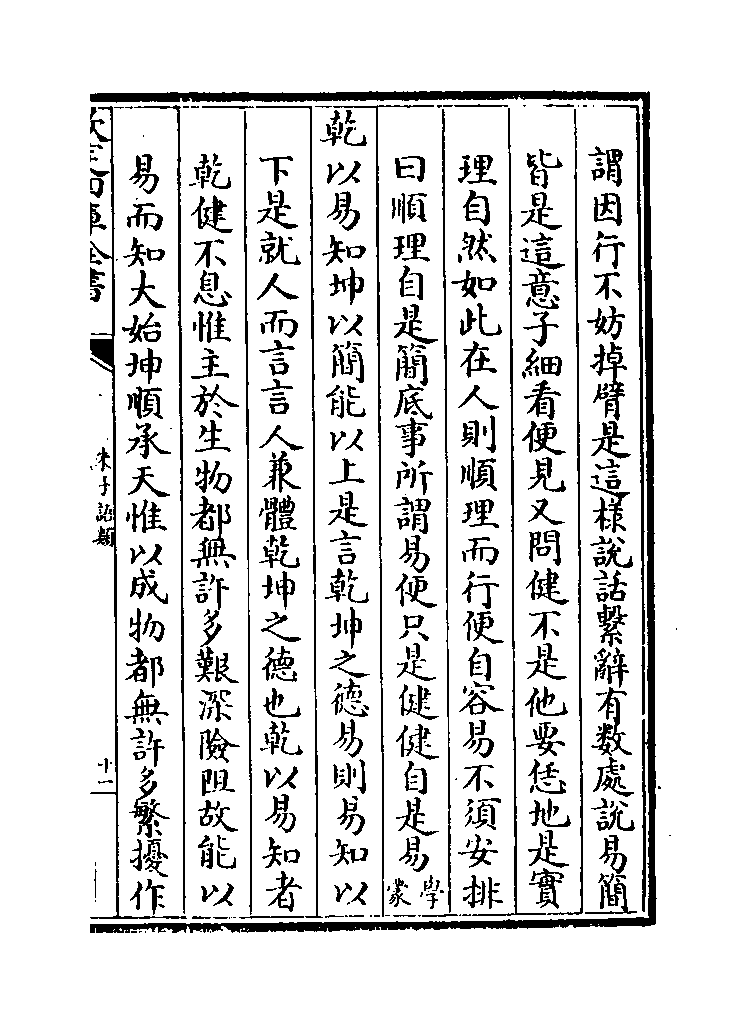 謂因行不妨掉臂是這樣說話繫辭有數處說易簡
皆是這意子細看便見又問健不是他要恁地是實
理自然如此在人則順理而行便自容易不須安排
曰順理自是簡底事所謂易便只是健健自是易學蒙
乾以易知坤以簡能以上是言乾坤之德易則易知以
下是就人而言言人兼體乾坤之德也乾以易知者
乾健不息惟主於生物都無許多艱深險阻故能以
易而知大始坤順承天惟以成物都無許多繁擾作
欽定四庫全書
朱子語類
十一